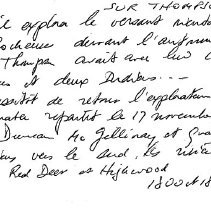 SUR THOMPS
il explora le versant orienta
ocheuses durant l'automne
Thompson avait avec lui c
s et deux Indiens...
de retour l'exploration
repartit le 17 novembre
Duncan Mc Gillivray et qua
vers le sud, les riviè
Red Deer et Highwood
1800 et 18